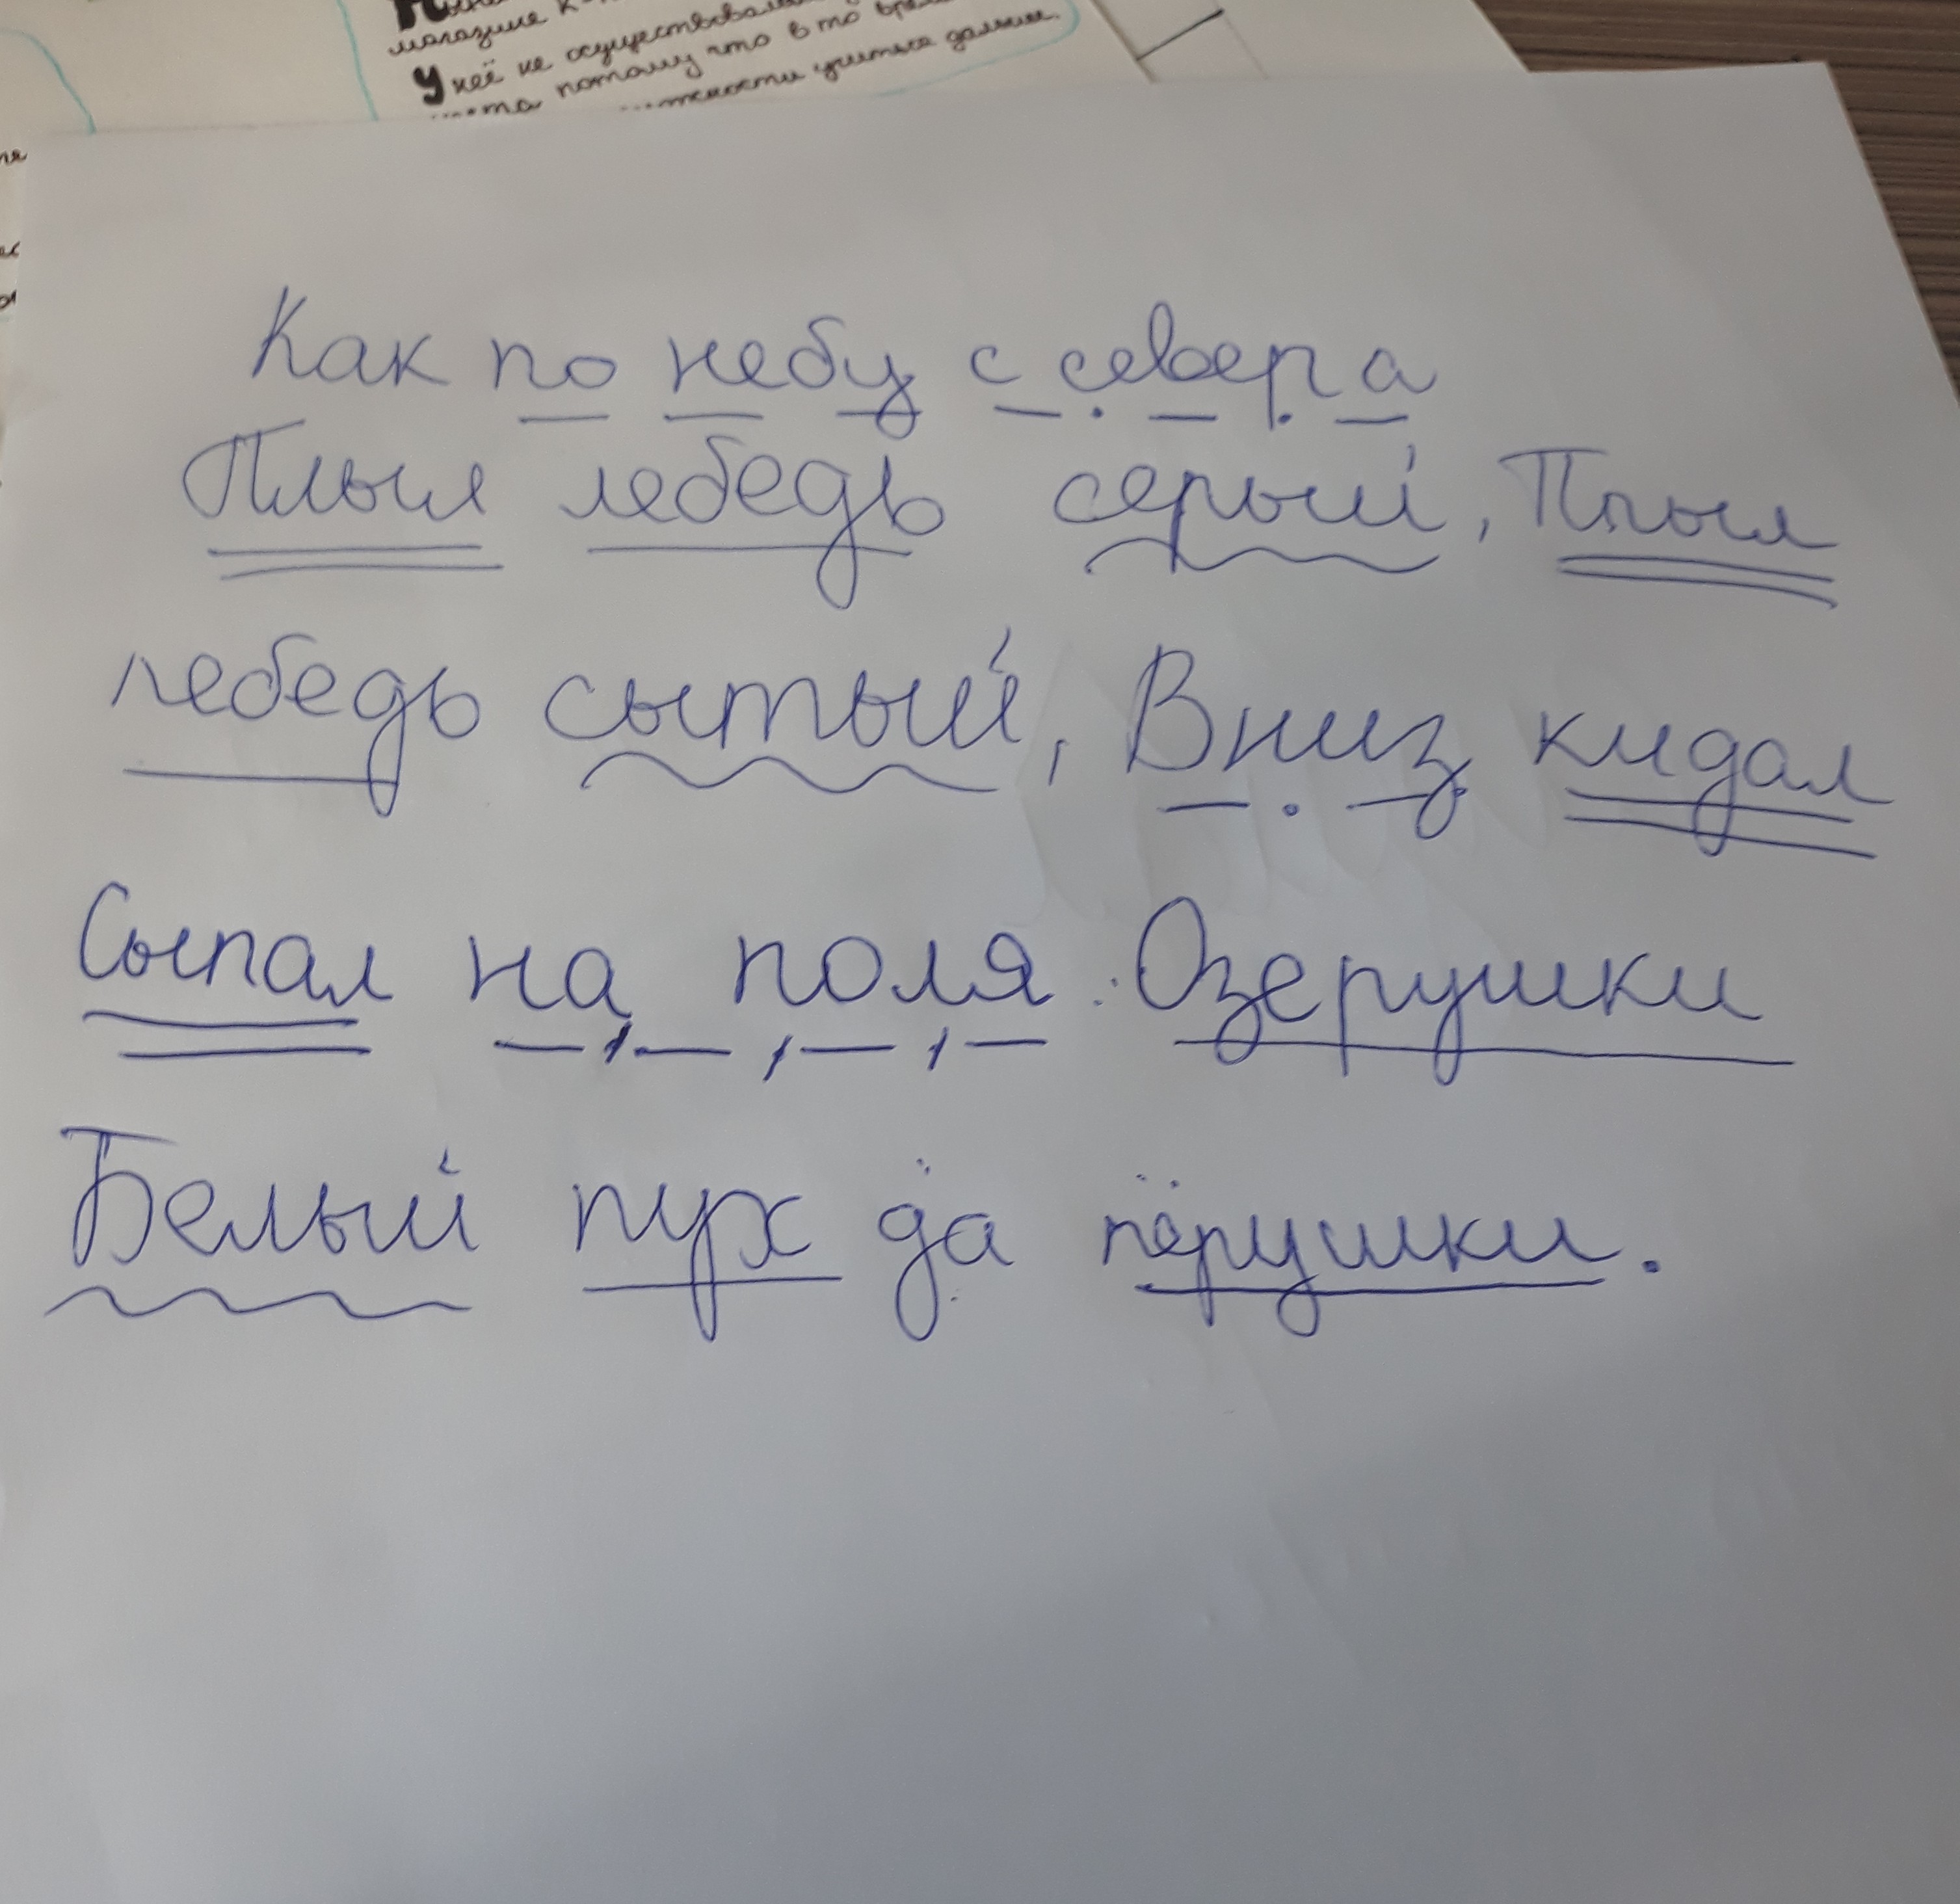 магазине к
У неё не осуществовала
потому что в то
учиться дальше.
Как по небу с севера
Плыл лебедь серый, Плыл
лебедь сытый, Вниз кидал
Сыпал на поля Озерушки
Белый пух да пёрушки.